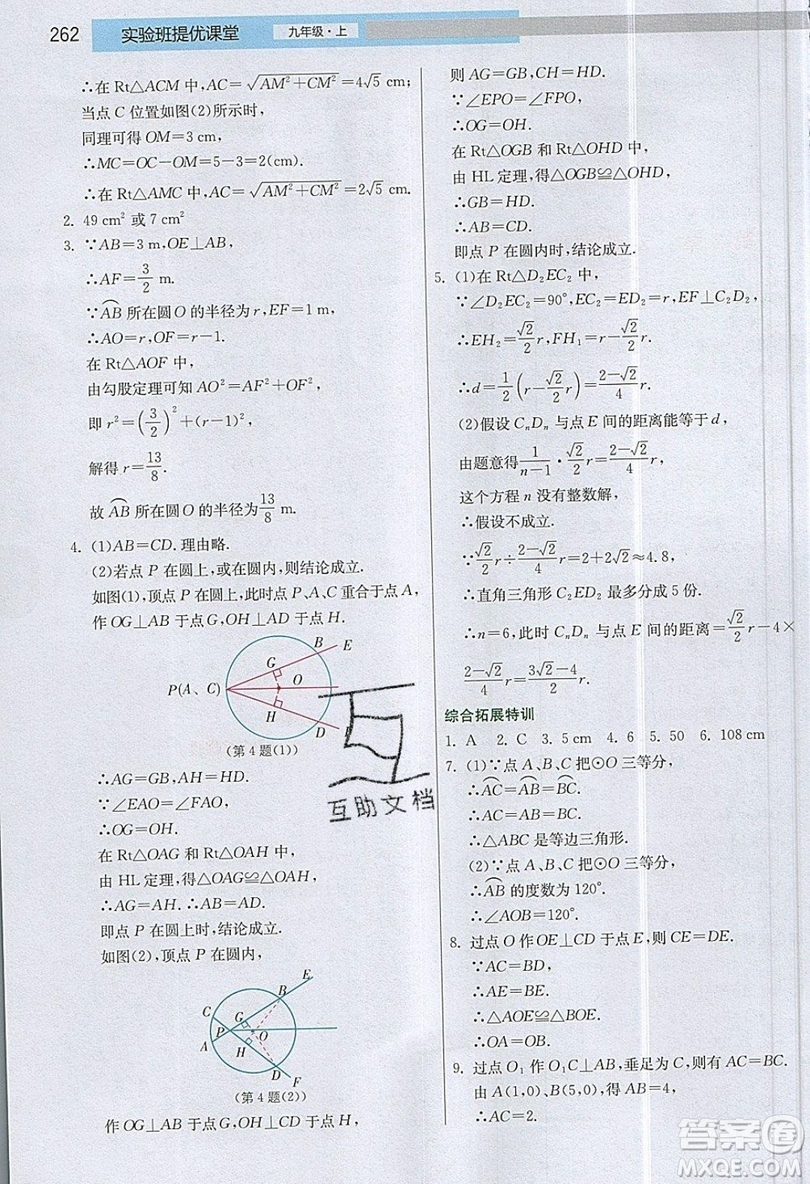 262 实验班提优课堂 九年级·上
∴在 Rt△ACM 中,AC=√(AM²+CM²)=4√5 cm;
当点 C 位置如图(2)所示时,
同理可得 OM=3 cm,
∴MC=OC−OM=5−3=2(cm).
∴在 Rt△AMC 中,AC=√(AM²+CM²)=2√5 cm.
2. 49 cm² 或 7 cm²
3. ∵AB=3 m,OE⊥AB,
∴AF=3/2 m.
∵⌒AB 所在圆O 的半径为 r,EF=1 m,
∴AO=r,OF=r−1.
在 Rt△AOF 中,
由勾股定理可知 AO²=AF²+OF²,
即 r²=(3/2)²+(r−1)².
解得 r=13/8.
故 ⌒AB 所在圆O 的半径为 13/8 m.
4. (1)AB=CD. 理由略.
(2)若点 P 在圆上,或在圆内,则结论成立.
如图(1),顶点 P 在圆上,此时点 P、A、C 重合于点 A,
作 OG⊥AB 于点 G,OH⊥AD 于点 H.
B E
G
P(A、C) O
H
D
(第 4 题(1))
∴AG=GB,AH=HD.
∵∠EAO=∠FAO,
∴OG=OH.
在 Rt△OAG 和 Rt△OAH 中,
由 HL 定理,得△OAG≌△OAH,
∴AG=AH. ∴AB=AD.
即点 P 在圆上时,结论成立.
如图(2),顶点 P 在圆内,
E
B
C G
P O
A H
D F
(第 4 题(2))
作 OG⊥AB 于点 G,OH⊥CD 于点 H,
则 AG=GB,CH=HD.
∵∠EPO=∠FPO,
∴OG=OH.
在 Rt△OGB 和 Rt△OHD 中,
由 HL 定理,得△OGB≌△OHD,
∴GB=HD.
∴AB=CD.
即点 P 在圆内时,结论成立.
5. (1)在 Rt△D₂EC₂ 中,
∵∠D₂EC₂=90°,EC₂=ED₂=r,EF⊥C₂D₂,
∴EH₂=√2/2 r,FH₁=r−√2/2 r.
∴d=1/2(r−√2/2 r)=(2−√2)/4 r.
(2)假设 CₙDₙ 与点 E 间的距离能等于 d,
由题意得 1/(n−1)·√2/2 r=(2−√2)/4 r,
这个方程 n 没有整数解,
∴假设不成立.
∵√2/2 r÷(2−√2)/4 r=2+2√2≈4.8,
∴直角三角形 C₂ED₂ 最多分成 5 份.
∴n=6,此时 CₙDₙ 与点 E 间的距离=√2/2 r−4×
(2−√2)/4 r=(3√2−4)/2 r.
综合拓展特训
1. A 2. C 3. 5 cm 4. 6 5. 50 6. 108 cm
7. (1)∵点 A、B、C 把⊙O 三等分,
∴⌒AC=⌒AB=⌒BC.
∴AC=AB=BC.
∴△ABC 是等边三角形.
(2)∵点 A、B、C 把⊙O 三等分,
∴⌒AB 的度数为 120°.
∴∠AOB=120°.
8. 过点 O 作 OE⊥CD 于点 E,则 CE=DE.
∵AC=BD,
∴AE=BE.
∴△AOE≌△BOE.
∴OA=OB.
9. 过点 O₁ 作 O₁C⊥AB,垂足为 C,则有 AC=BC.
由 A(1,0)、B(5,0),得 AB=4,
∴AC=2.
互助文档
答案圈
MXQE.COM